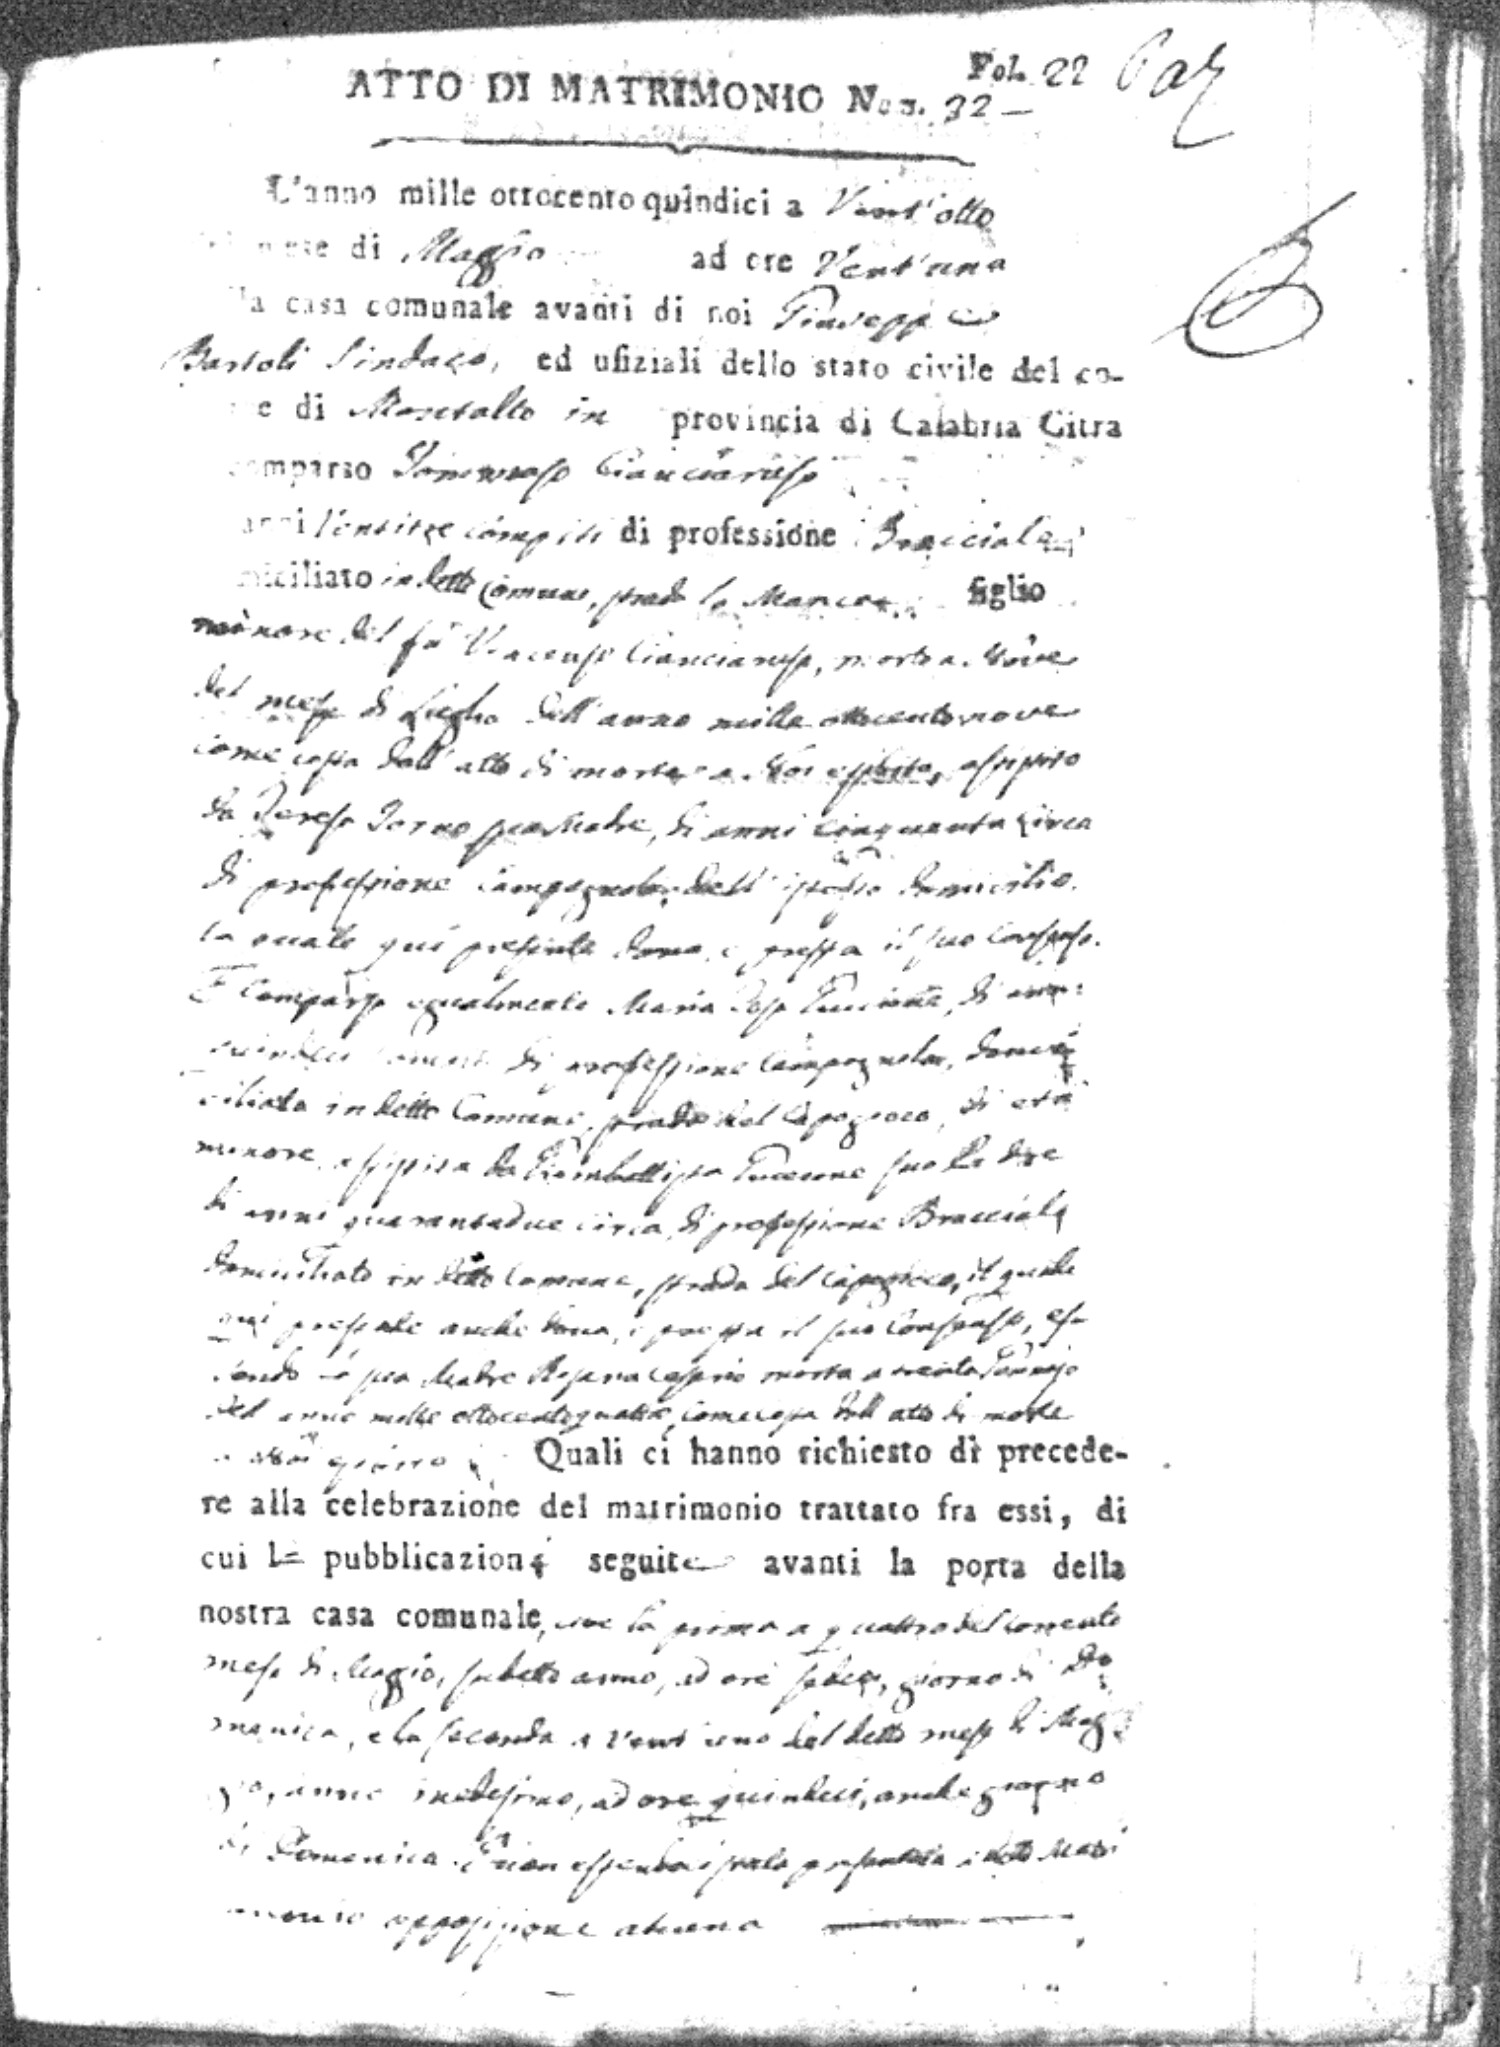 Fol. 22
ATTO DI MATRIMONIO Num. 32 —
L'anno mille ottocento quindici a Vent'otto
mese di Maggio ad ore Vent'una
la casa comunale avanti di noi Giuseppe
Bartoli Sindaco, ed ufiziali dello stato civile del co-
e di Montalto in provincia di Calabria Citra
omparso Tommaso Cianciaruso
anni compiti di professione Bracciale
miciliato in detto Comune, strada la Manca figlio
minore del fù Vincenzo Cianciaruso, morto a Nove
del mese di Luglio dell'anno mille ottocento nove
come costa dall'atto di morte a Noi esibito, assistito
da Teresa Torno sua Madre, di anni cinquanta circa
di professione Campagnola, dell'istesso domicilio,
la quale quì presente dona, e presta il suo Consenso.
E Comparsa egualmente Maria Rosa Puccione, di anni
quindici di professione Campagnola, domi-
ciliata in detto Comune, strada del Capogioco, di età
minore, assistita da Giambattista Puccione suo Padre
di anni quarantadue circa, di professione Bracciale
domiciliato in detto Comune, strada del Capogioco, il quale
qui presente anche dona, e presta il suo Consenso, es-
sendo la sua Madre Rosana morta a trenta Gennajo
del anno mille ottocento quattro, come costa dall'atto di morte
Quali ci hanno richiesto di precede-
re alla celebrazione del matrimonio trattato fra essi, di
cui le pubblicazioni seguite avanti la porta della
nostra casa comunale, cioe la prima a quattro del corrente
mese di Maggio, sudetto anno, ad ore sedici, giorno di Do
menica, e la seconda a vent'uno del detto mese di Mag
gio, anno medesimo, ad ore quindeci, anche giorno
di Domenica. E non essendoci stata presentata a detto Matri
monio opposizione alcuna